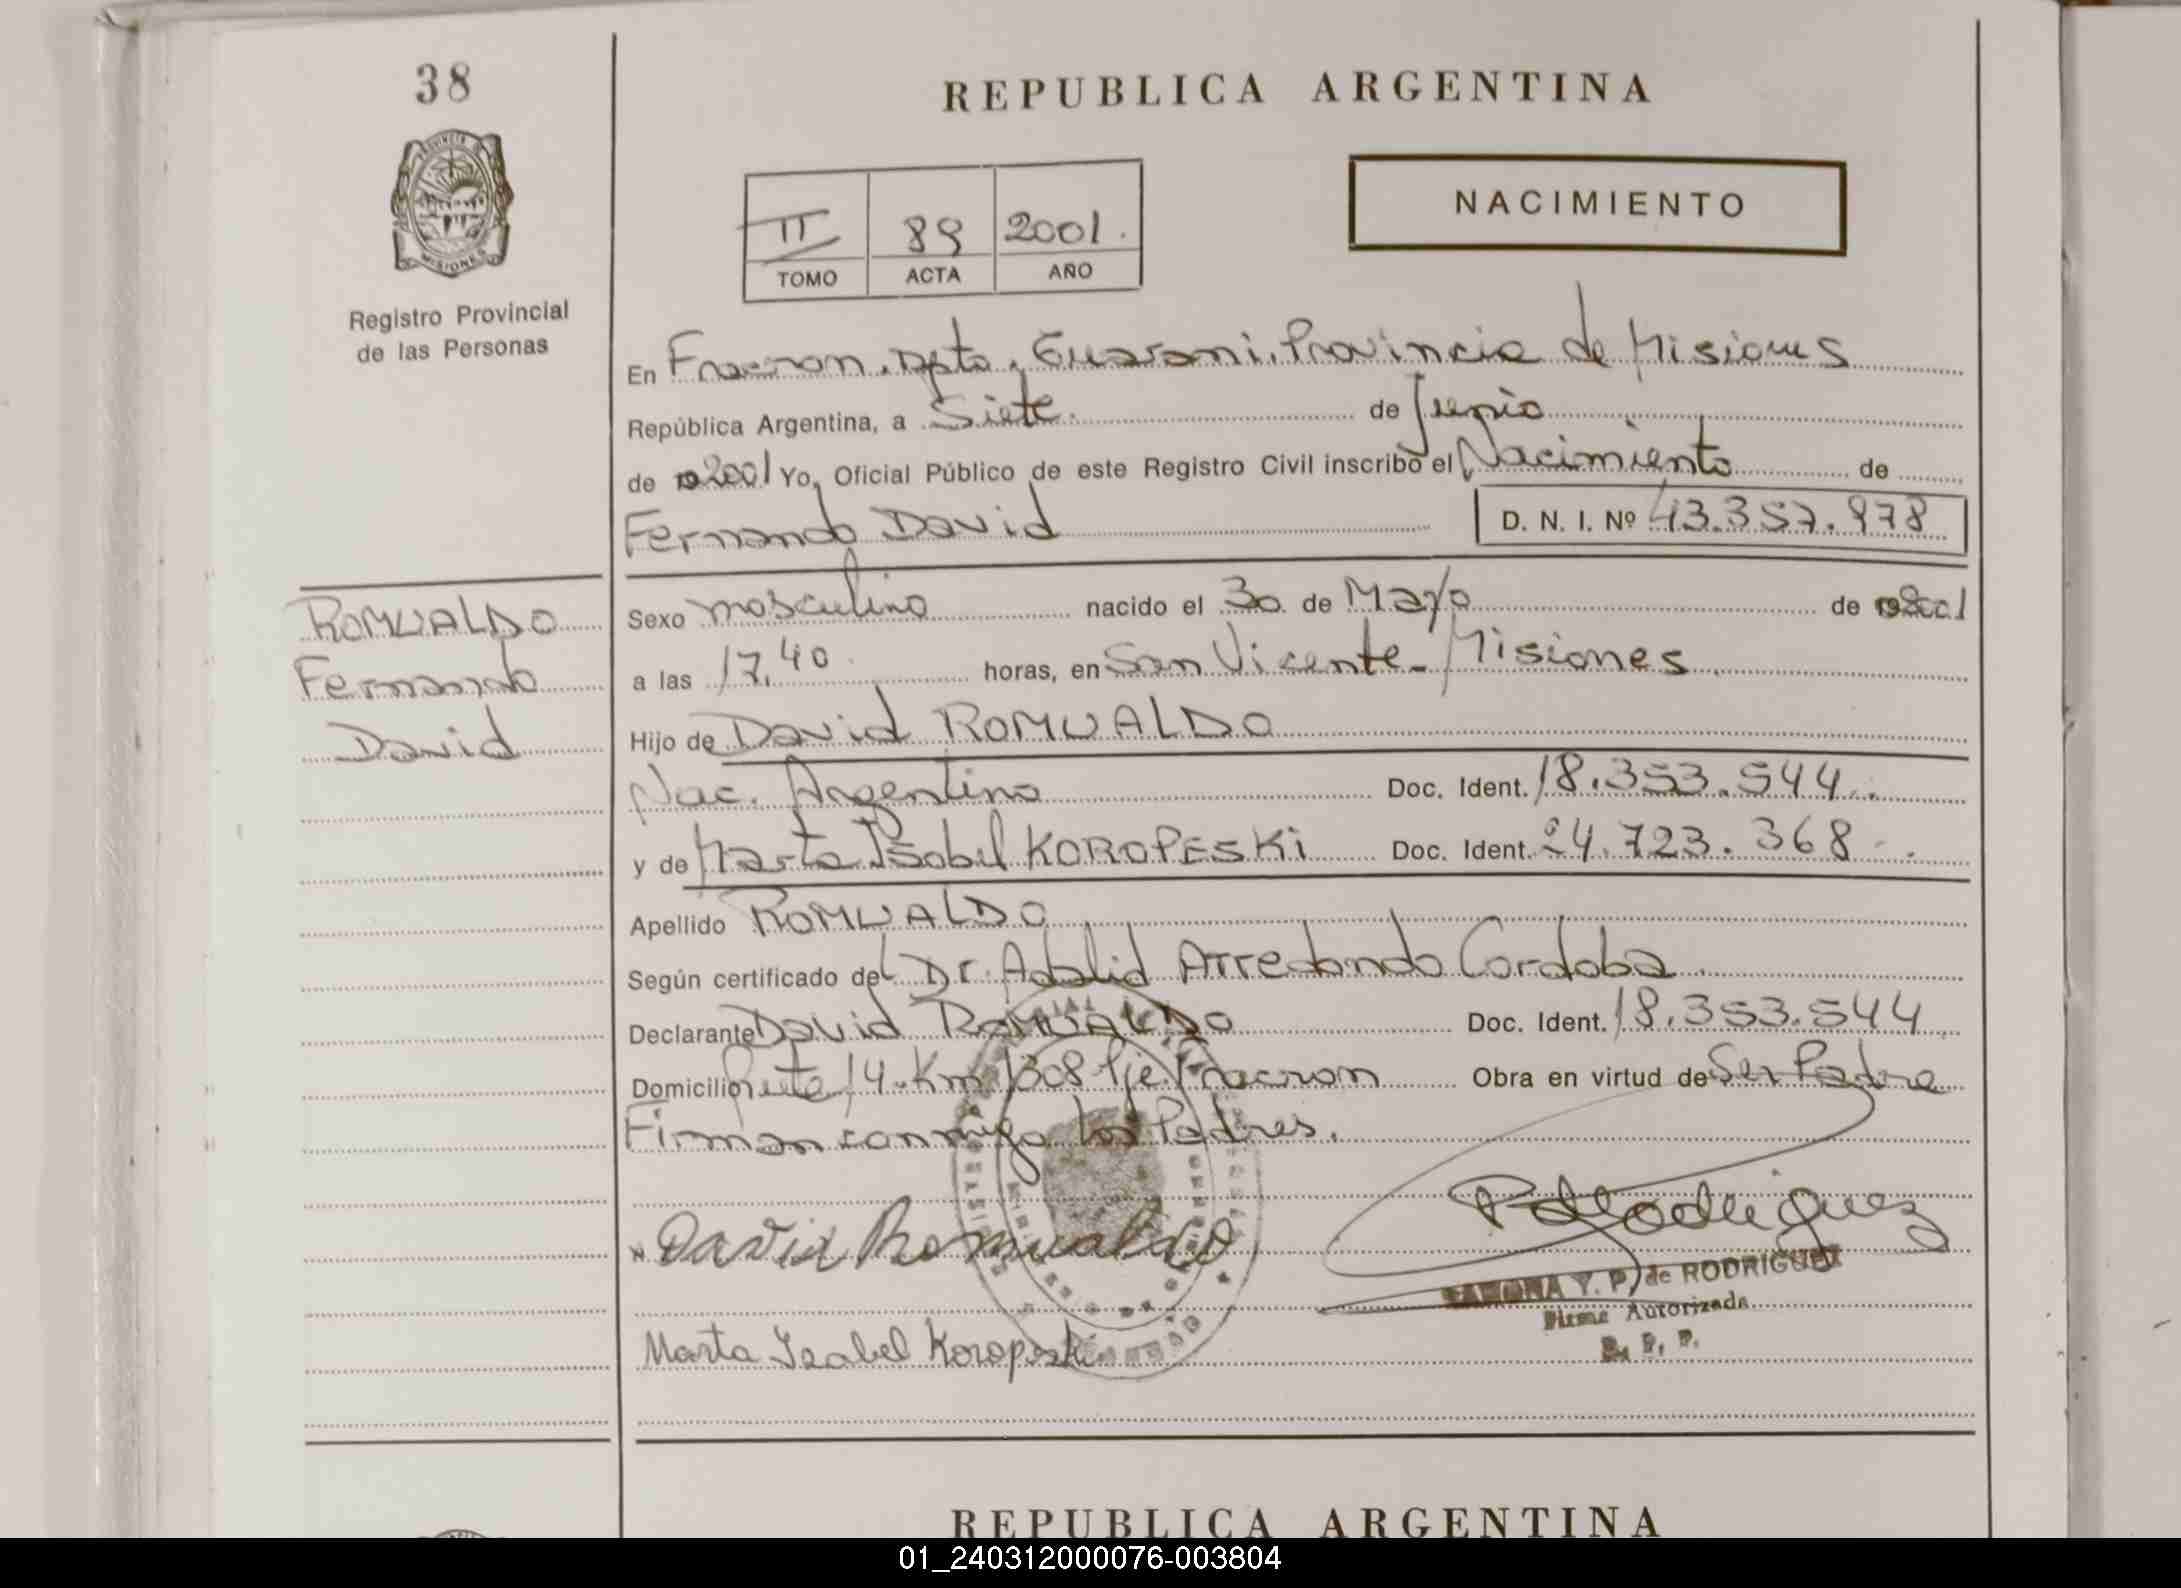 38
REPUBLICA ARGENTINA
NACIMIENTO
II 89 2001.
TOMO ACTA AÑO
MISIONES
Registro Provincial
de las Personas
En Fracran. Dpto. Guarani. Provincia de Misiones
República Argentina, a Siete. de Junio
de 2001 Yo, Oficial Público de este Registro Civil inscribo el Nacimiento de
Fernando David D. N. I. Nº 43.357.978
ROMUALDO
Fernando
David
Sexo masculino nacido el 30 de Mayo de 2001
a las 17,40 horas, en San Vicente - Misiones
Hijo de David ROMUALDO
Nac. Argentino Doc. Ident. 18.353.544
y de Marta Isabel KOROPESKi Doc. Ident. 24.723.368
Apellido ROMUALDO
Según certificado del Dr. Adalid Arredondo Cordoba
Declarante David ROMUALDO Doc. Ident. 18.353.544
Domicilio Ruta 14 Km 1308 Pje. Fracran Obra en virtud de Ser Padre
Firman conmigo los Padres.
David Romualdo
Rodriguez
RAMONA Y. P. de RODRIGUEZ
Firma Autorizada
R. P. P.
Marta Isabel Koropeski
REPUBLICA ARGENTINA
01_240312000076-003804